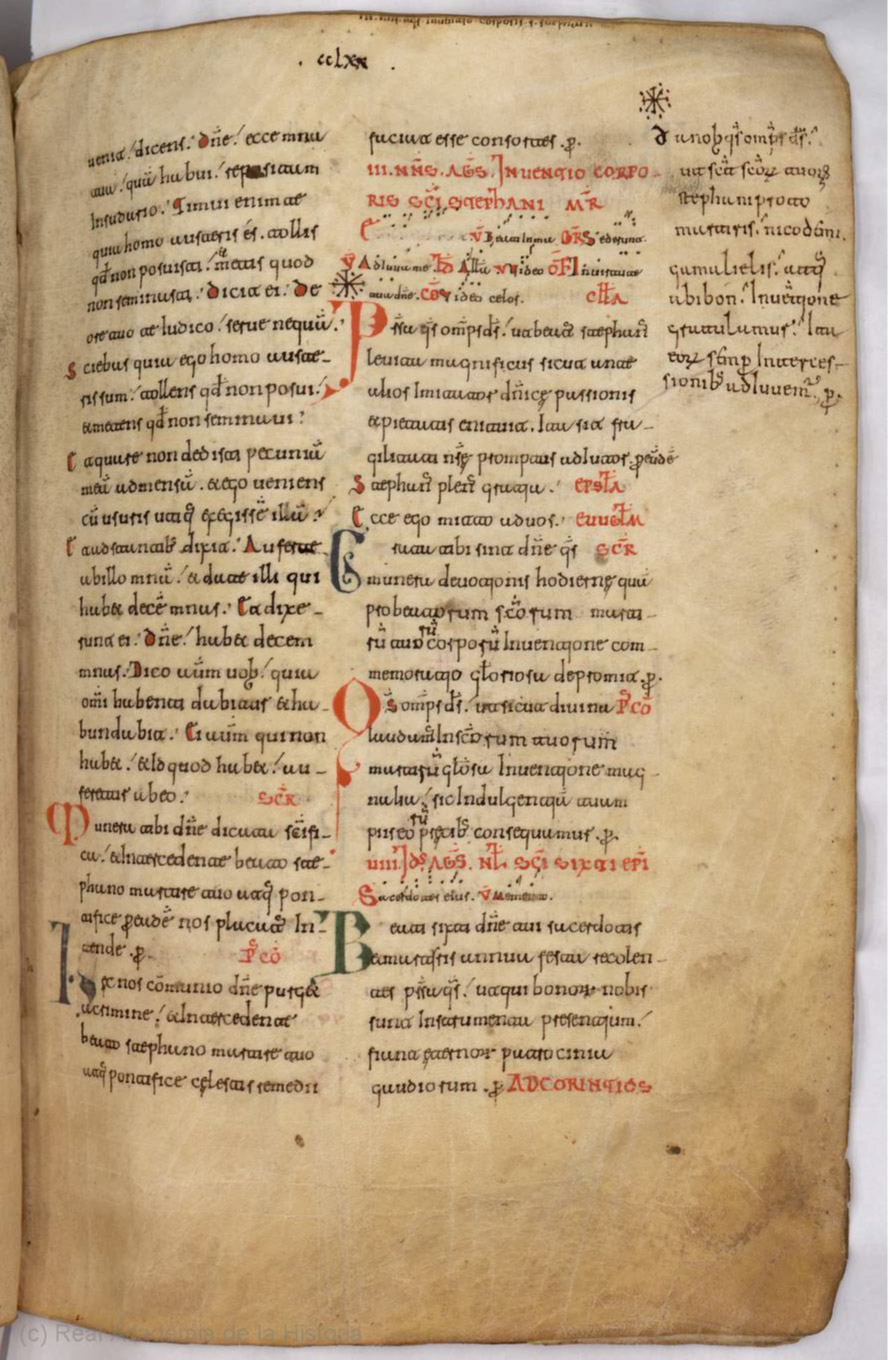 . cclxx .
uenit dicens. Dñe ecce mna
tua quã habui reposi­tam
In sudario. Timui enim te
quia homo austeris és. tollis
qđ non posuisti. metis quod
non seminasti. Dicit ei. De
ore tuo te Iudico serue nequã.
Sciebas quia ego homo auste-
ris sum. tollens qđ non posui.
& metens qđ non seminaui?
Et quare non dedisti pecuniã
meã ad mensã. & ego ueniens
cũ usuris utiq; exegissẽ illã?
Et adstantib; dixit. Auferte
ab illo mnã. & date illi qui
habet decẽ mnas. Et dixe-
runt ei. Dñe habet decem
mnas. Dico aũm uob quia
omi habenti dabitur & ha-
bundabit. Et aũm qui non
habet. & Id quod habet au-
feretur ab eo. SCR
Munera tibi dñe dicata scifi-
ca. & Intercedente beato ste-
phano martire tuo atq; pon-
tifice p eadẽ nos placatus In-
tende. p. P̃ CÕ
Hec nos cõmunio dñe purget
a crimine. & Intercedente
beato stephano martire tuo
atq; pontifice celestis remedii
faciat esse consortes. p.
III. NÑS. AGS. Inuentio CORPO-
RIS SCI STEPHANI MR
V Adiuua me. Alla Video OF
tua dñe. CO Video celos. CLLA
Presta qs omps ds. ut beatus stephanus
leuita magnificus sicut ante
alios Imitator dñice passionis
& pietatis enituit. Ita sit fra-
gilitati nře promptus adiutor. p eudẽ
Stephanus plen gratia. EPSTLA
Ecce ego mitto ad uos. EUUGLM
Grata tibi sint dñe qs SCR
munera deuotionis hodierne que
probatorum scorum martirũ
tuorũ corporũ Inuentione com-
memoratio gloriosa depromit. p.
Qs omps ds. ut sicut diuina P̃ CÕ
laudamus In scorum tuorum
martirũ gloriosa Inuentione mag-
nalia. sic Indulgentiã tuam
piis eorũ precib; consequamur. p.
IIII. Ids AGS. NL SCI SIXTI EPI
Sacerdotes eius. V Memento.
Beati sixti dñe tui sacerdotis
& martiris annua festa recolen-
tes p̃sta qs. ut a qui bonorum nobis
sunt Instrumenta presentium.
fiant eternorum patrocinia
gaudiorum. p AD CORINTIOS
Da nob qs omps ds.
ut sca scor tuorum
stephani proto
martiris. nicodemi.
gamalielis. atq;
abibon. Inuentione
gratulamur. Ita
eor semp Interces-
sionib; adIuuemur. p.
(c) Real Academia de la Historia